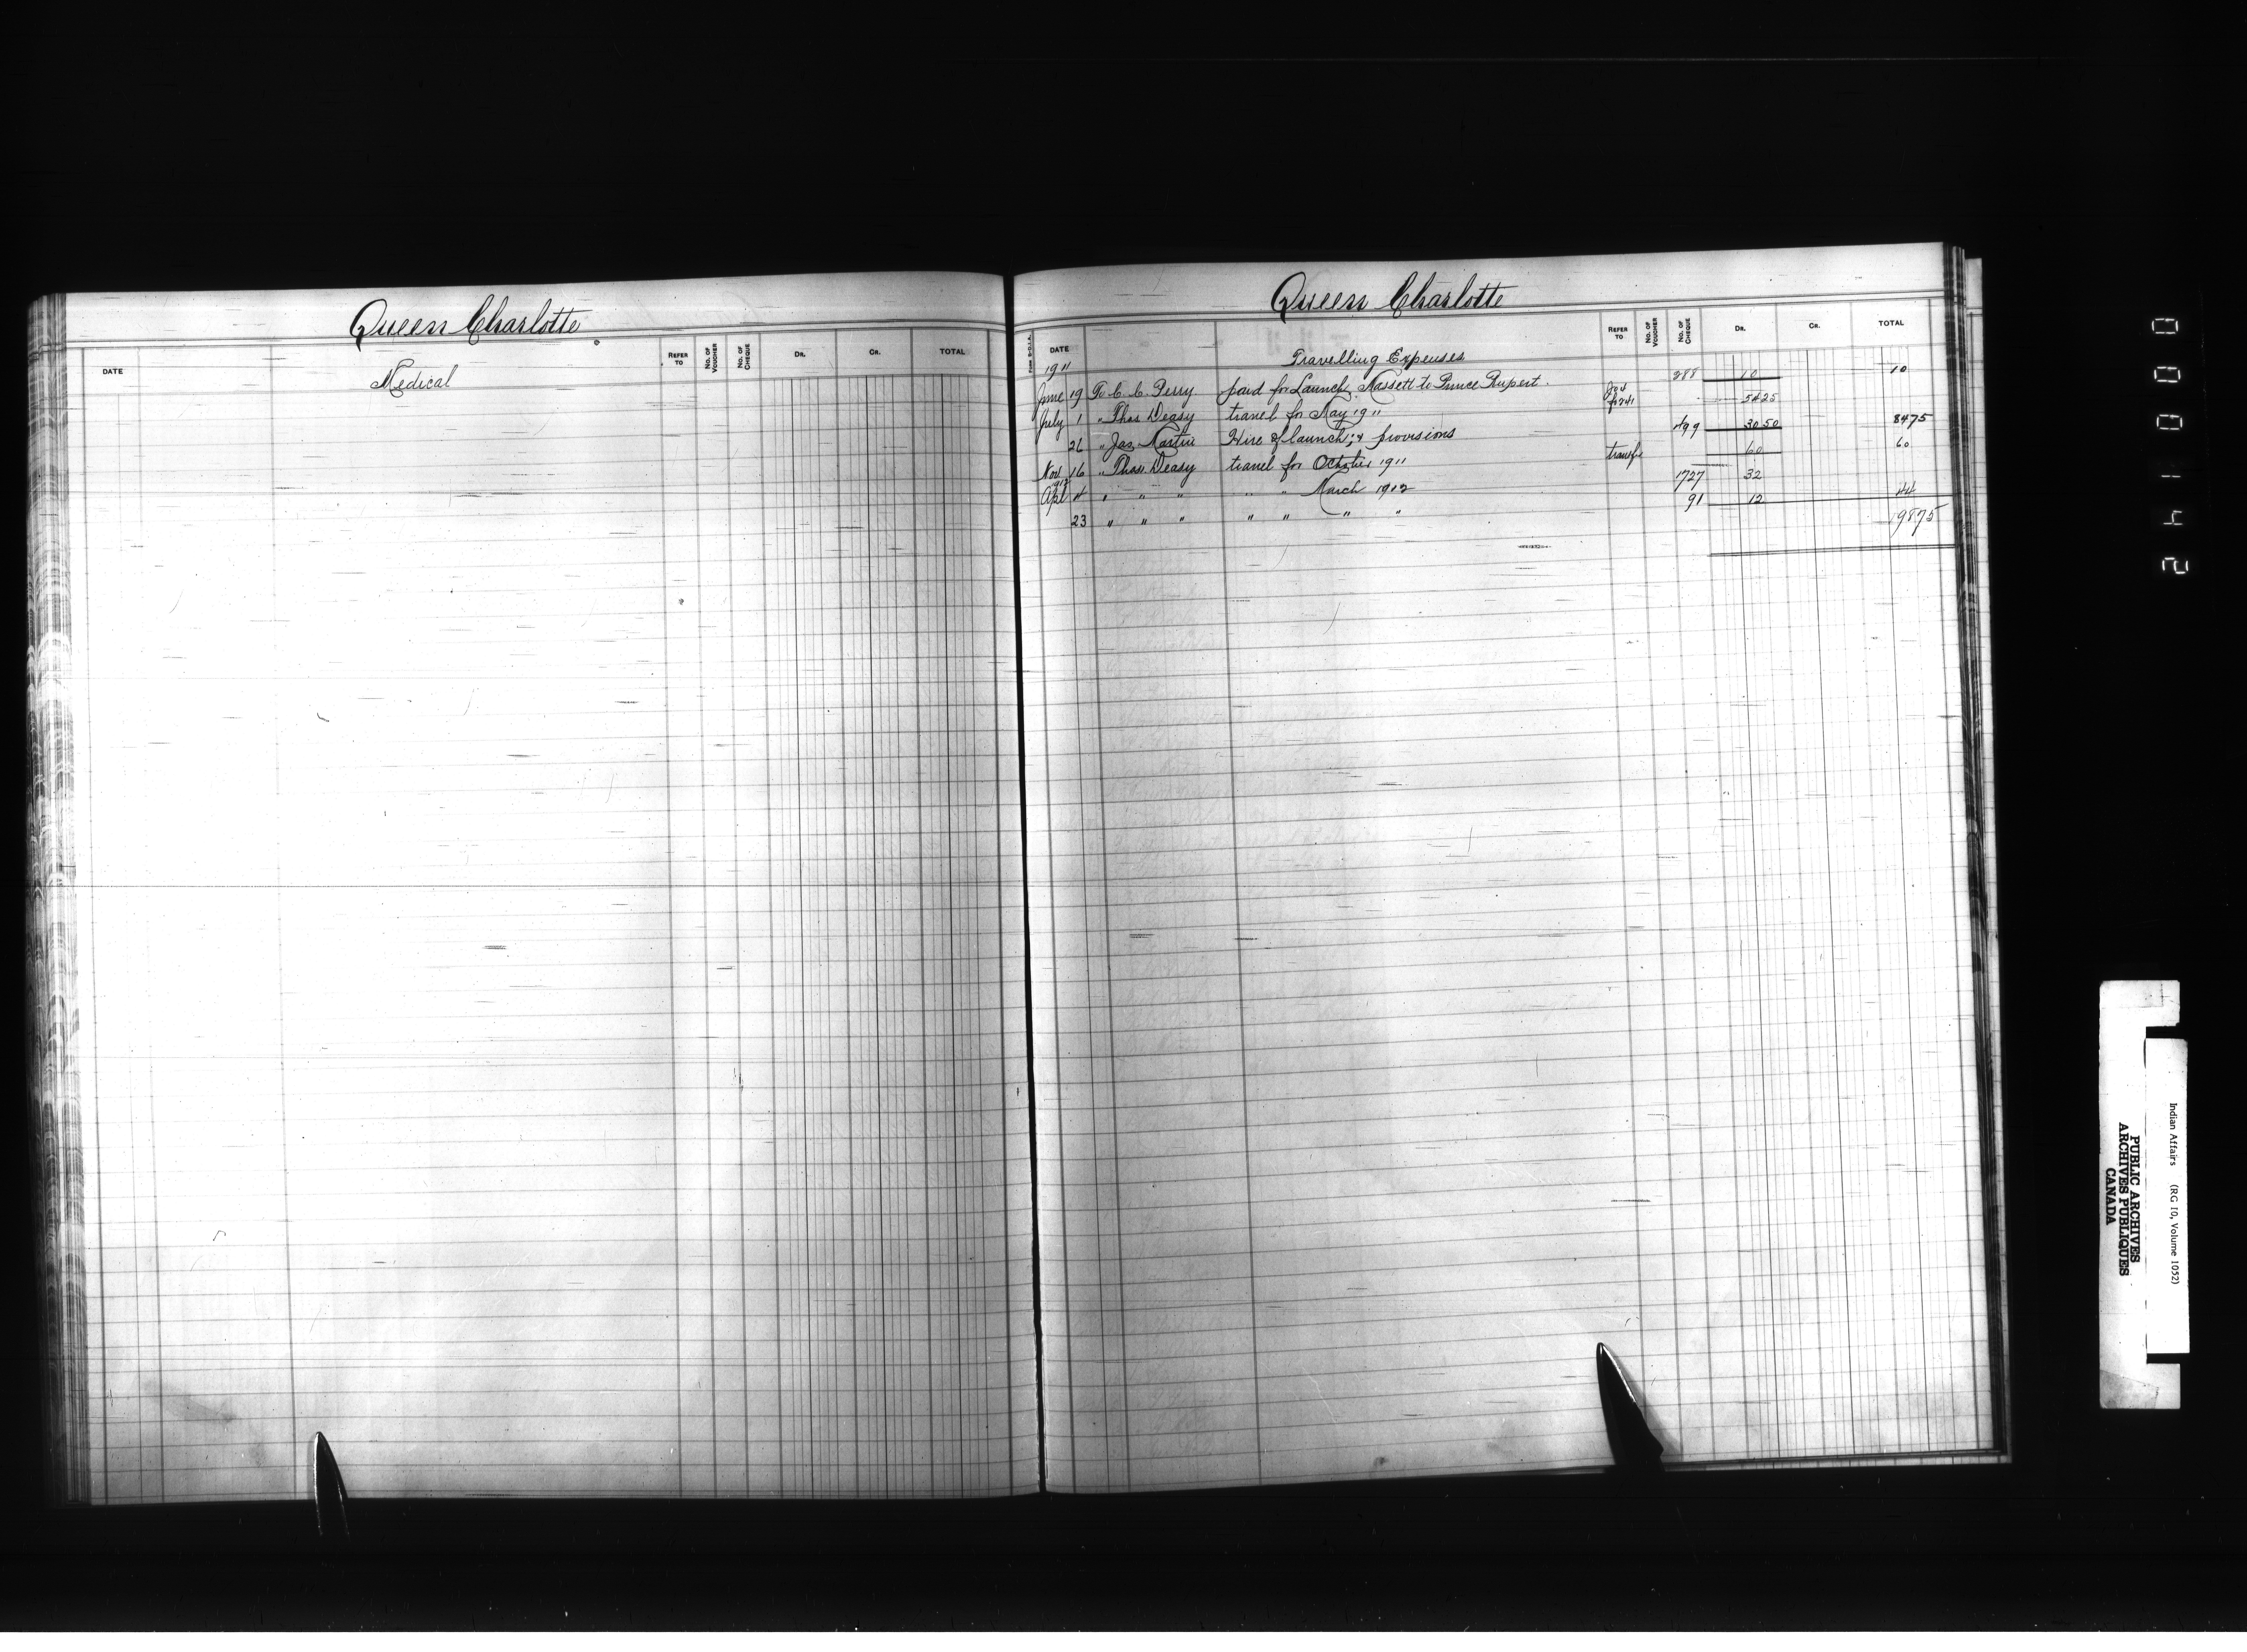 Queen Charlotte
DATE REFER TO No. OF VOUCHER No. OF CHEQUE DR. CR. TOTAL
Medical
Queen Charlotte
DATE REFER TO No. OF VOUCHER No. OF CHEQUE DR. CR. TOTAL
Travelling Expenses
1911
June 19 To C. C. Perry paid for Launch, Massett to Prince Rupert. 288 10 10
July 1 " Thos Deasy travel for May 1911 54 25
26 " Jas. Martin Hire of launch, & provisions 499 30 50 84 75
Nov 16 " Thos. Deasy travel for October 1911 transfer 60 60
1912
Apl 4 " " " " " March 1912 1727 32
23 " " " " " " " 91 12 44
198 75
2410000
Indian Affairs (RG 10, Volume 1052)
PUBLIC ARCHIVES
ARCHIVES PUBLIQUES
CANADA